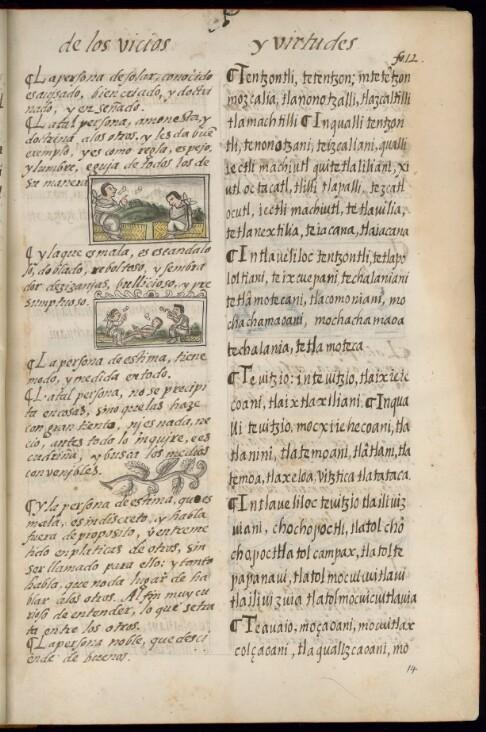 de los vicios y virtudes
fo.12.
¶La persona de solar, conocido
es auisado, bien criado, y doctri
nado, y enseñado.
¶La tal persona, amonesta, y
doctrina alos otros, y les da buē
exemplo, y es como regla, espejo,
y lumbre, eguja de todos los de
su manera
¶y la que es mala, es escandalo
so, doblado, reboltoso, y sembra
dor de zizanjas, bullicioso, y pre
sumptuoso.
¶La persona de estima, tiene
modo, y medida en todo.
¶La tal persona, no se precipi
ta en cosas, sino que las haze
con gran tiento, nj es nada, ne
cio, antes todo lo inquire, e es
cudriña, y busca los medios
convenjbles.
¶Y la persona de estima, que es
mala, es indiscreto, y habla
fuera de proposito, y entreme
tido en platicas de otros, sin
ser llamado para ello: y tanto
habla, que no da lugar de ha
blar alos otros. Al fin muy cu
rioso de entender, lo que se tra
ta entre los otros.
¶La persona noble, que desci
ende de buenos.
¶Tentzontli, tetentzon; in tetētzon
mozcalia, tlanonotzalli, tlazcaltilli
tlamachtilli ¶In qualli tentzon
tli, tenonotzani, teizcaliani, qualli
iectli machiutl quitetlaliliani, xi
utl octacatl, tlilli tlapalli, tezcatl
ocutl, iectli machiutl, tetlauilia,
tetlanextilia, teiacana, tlaiacana
¶In tlaueliloc tentzontli, tetlapo
lolitiani, teixcuepani techalaniani
tetlamotecani, tlacomoniani, mo
chachamaoani, mochachamaoa
techalania, tetlamoteca.
¶Teuitzio: in teuitzio, tlaixieie
coani, tlaixtlaxiliani. ¶In qua
lli teuitzio, mocxiiehecoani, tla
tlanini, tlatemoani, tlàtlani, tla
temoa, tlaxeloa, vitztica tlatataca.
¶In tlaueliloc teuitzio tlailiuiz
uiani, chochopoctli, tlatol cho
chopoctli tlatol campax, tlatolte
papanaui, tlatol mocuicuitlaui
tlailiuizuia tlatolmocuicuitlauia
¶Teauaio; moçaoani, mocuitlax
colçaoani, tlaqualizcaoani, mo
14